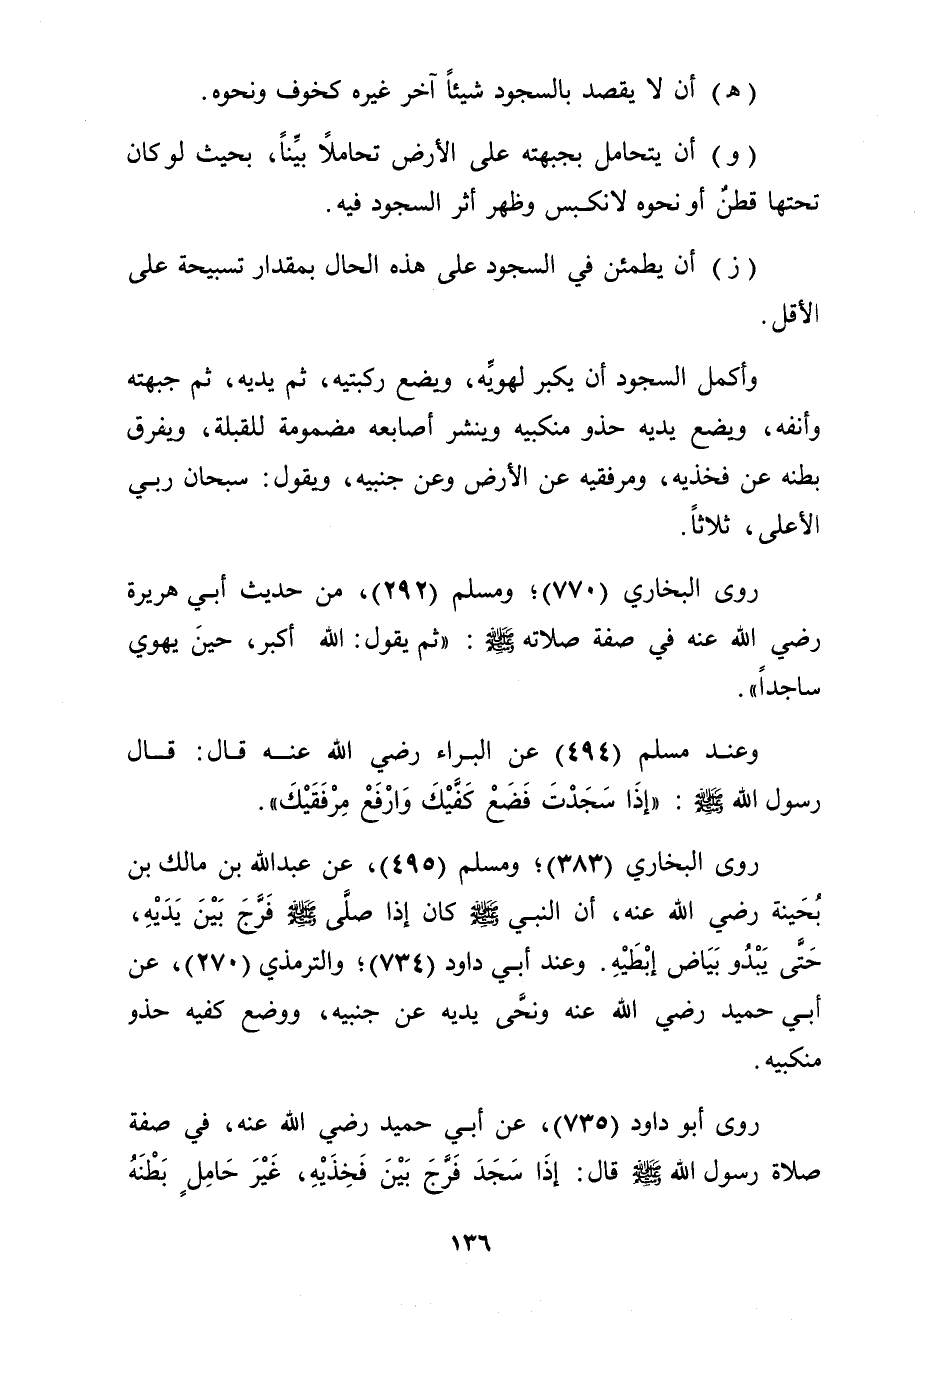 (هـ) أن لا يقصد بالسجود شيئاً آخر غيره كخوف ونحوه.
(و) أن يتحامل بجبهته على الأرض تحاملاً بيِّناً، بحيث لو كان
تحتها قطنٌ أو نحوه لانكبس وظهر أثر السجود فيه.
(ز) أن يطمئن في السجود على هذه الحال بمقدار تسبيحة على
الأقل.
وأكمل السجود أن يكبر لهويِّه، ويضع ركبتيه، ثم يديه، ثم جبهته
وأنفه، ويضع يديه حذو منكبيه وينشر أصابعه مضمومة للقبلة، ويفرق
بطنه عن فخذيه، ومرفقيه عن الأرض وعن جنبيه، ويقول: سبحان ربي
الأعلى، ثلاثاً.
روى البخاري (٧٧٠)؛ ومسلم (٢٩٢)، من حديث أبي هريرة
رضي الله عنه في صفة صلاته ﷺ : «ثم يقول: الله أكبر، حينَ يهوي
ساجداً».
وعند مسلم (٤٩٤) عن البراء رضي الله عنه قال: قال
رسول الله ﷺ : «إِذَا سَجَدْتَ فَضَعْ كَفَّيْكَ وَارْفَعْ مِرْفَقَيْكَ».
روى البخاري (٣٨٣)؛ ومسلم (٤٩٥)، عن عبدالله بن مالك بن
بُحَينة رضي الله عنه، أن النبي ﷺ كان إذا صلَّى ﷺ فَرَّجَ بَيْنَ يَدَيْهِ،
حَتَّى يَبْدُو بَيَاض إبْطَيْهِ. وعند أبي داود (٧٣٤)؛ والترمذي (٢٧٠)، عن
أبي حميد رضي الله عنه ونحَّى يديه عن جنبيه، ووضع كفيه حذو
منكبيه.
روى أبو داود (٧٣٥)، عن أبي حميد رضي الله عنه، في صفة
صلاة رسول الله ﷺ قال: إِذَا سَجَدَ فَرَّجَ بَيْنَ فَخِذَيْهِ، غَيْرَ حَامِلٍ بَطْنَهُ
١٣٦